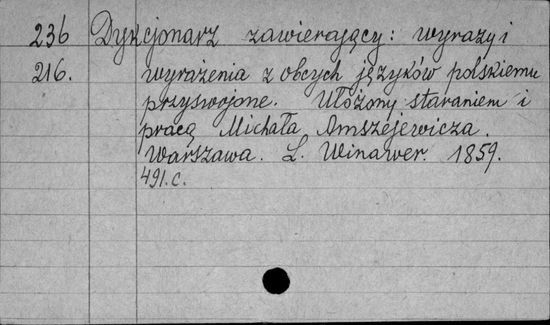 236 Dykcjonarz zawierający: wyrazy i
216. wyrażenia z obcych języków polskiemu
przyswojone. Ułożony staraniem i
pracą Michała Amszejewicza.
Warszawa. L. Winawer. 1859.
491.c.